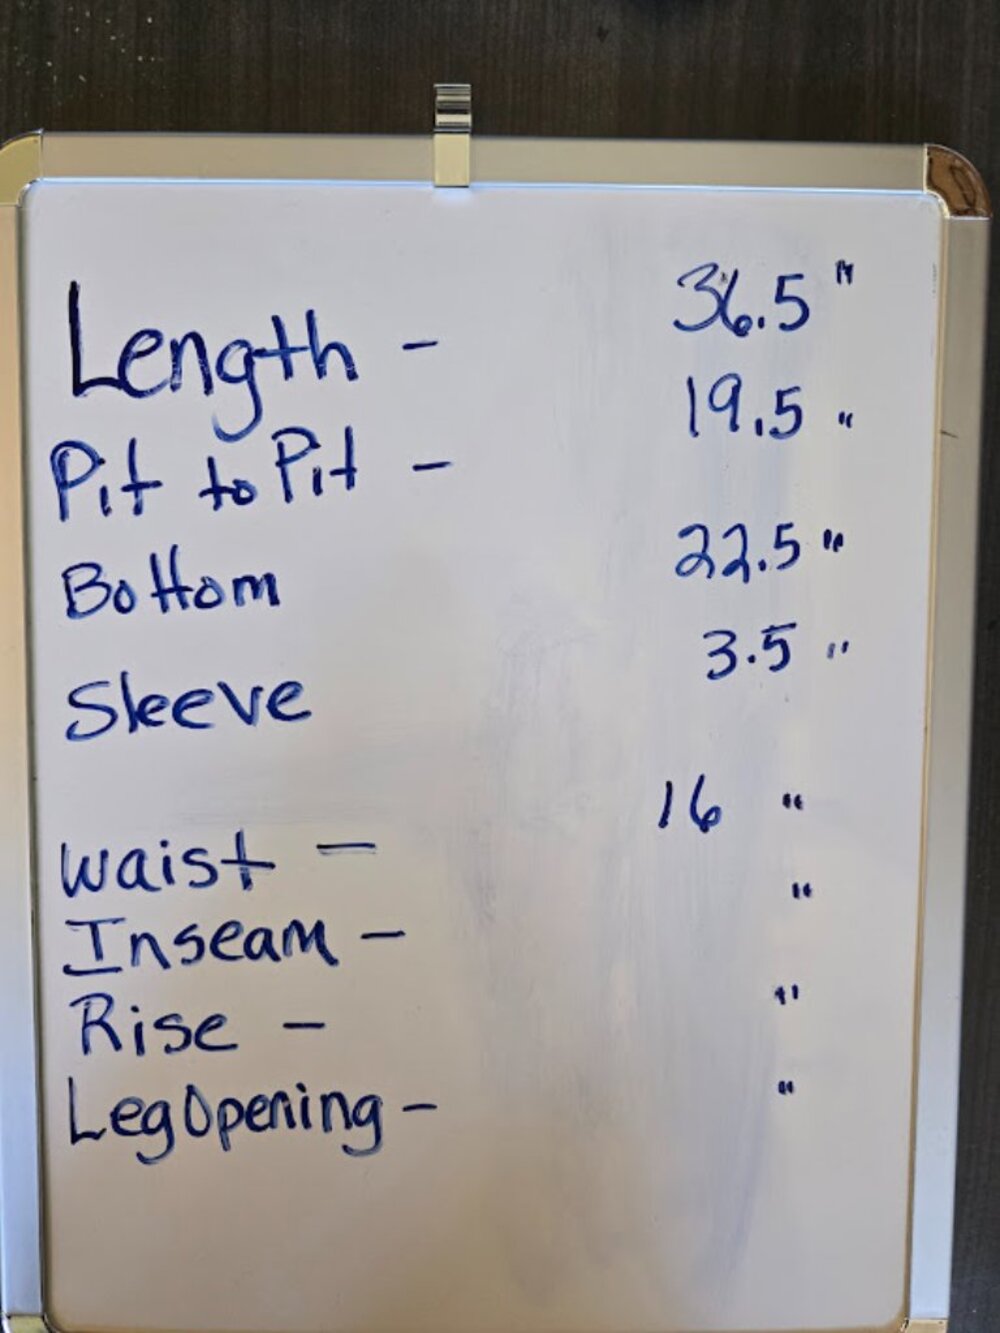 Length - 36.5"
Pit to Pit - 19.5"
Bottom 22.5"
Sleeve 3.5"
Waist - 16"
Inseam - "
Rise - "
Leg Opening - "